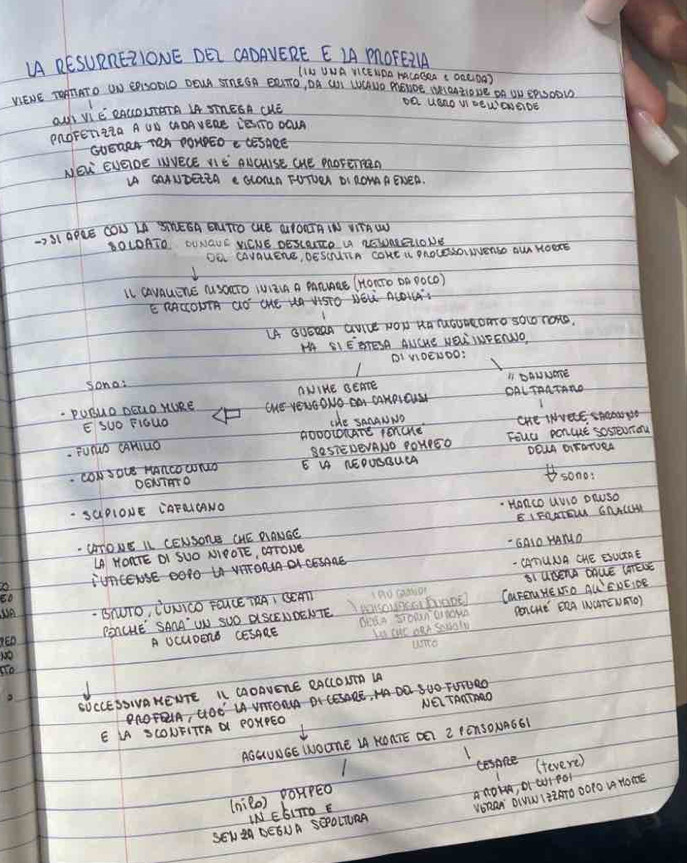 LA RESURREZIONE DEL CADAVERE E LA PROFEZIA
(IN UNA VICENDA MACABRA E ORRIDA)
VIENE TRATTATO UN EPISODIO DELLA STREGA ERITTO, DA CUI LUCANO PRENDE ISPIRAZIONE DA UN EPISODIO
DEL LIBRO VI DELL'ENEIDE
QUI VI È RACCONTATA LA STREGA CHE
PROFETIZZA A UN CADAVERE L'ESITO DELLA
GUERRA TRA POMPEO E CESARE
NELL' ENEIDE INVECE VI È ANCHISE CHE PROFETIZZA
LA GRANDEZZA E GLORIA FUTURA DI ROMA A ENEA.
-> SI APRE CON LA STREGA ERITTO CHE RIPORTA IN VITA UN
SOLDATO DUNQUE VIENE DESCRITTO LA RESURREZIONE
DEL CAVALIERE, DESCRITTA COME IL PROCESSO INVERSO ALLA MORTE
IL CAVALIERE RISORTO INIZIA A PARLARE (MORTO DA POCO)
E RACCONTA CIÒ CHE HA VISTO NELL' ALDILÀ:
LA GUERRA CIVILE NON HA RIGUARDATO SOLO ROMA,
MA SI È ESTESA ANCHE NELL' INFERNO,
DIVIDENDO:
sono:
ANIME BEATE
CHE VENGONO DAI CAMPI ELISI
che SARANNO
ADDOLORATE PERCHÉ
SOSTENEVANO POMPEO
E LA REPUBBLICA
" DANNATE
DAL TARTARO
CHE INVECE SARANNO
FELICI PERCHÉ SOSTENITORI
DELLA DITATURA
sono:
• PUBLIO DECIO MURE
E SUO FIGLIO
• FURIO CAMILLO
• CONSOLE MARCO CURIO
DENTATO
• SCIPIONE L'AFRICANO
• CATONE IL CENSORE CHE PIANGE
LA MORTE DI SUO NIPOTE, CATONE
L'UTICENSE DOPO LA VITTORIA DI CESARE
• BRUTO, L'UNICO FELICE TRA I BEATI
PERCHÉ SARÀ UN SUO DISCENDENTE
A UCCIDERE CESARE
• MARCO LIVIO DRUSO
E I FRATELLI GRACCHI
• GAIO MARIO
• CATILINA CHE ESULTA E
SI LIBERA DALLE CATENE
(RIFERIMENTO ALL' ENEIDE
PERCHÉ ERA INCATENATO)
I PIÙ GRANDI
PERSONAGGI
DELLA STORIA DI ROMA
SUCCESSIVAMENTE IL CADAVERE RACCONTA LA
PROFEZIA, CIOÈ LA VITTORIA DI CESARE, MA DEL SUO FUTURO
NEL TARTARO
E LA SCONFITTA DI POMPEO
AGGIUNGE INOLTRE LA MORTE DEI 2 PERSONAGGI
(nilo) POMPEO
IN EGITTO E
SENZA DEGNA SEPOLTURA
CESARE (tevere)
A ROMA, DI CUI POI
VERRÀ DIVINIZZATO DOPO LA MORTE